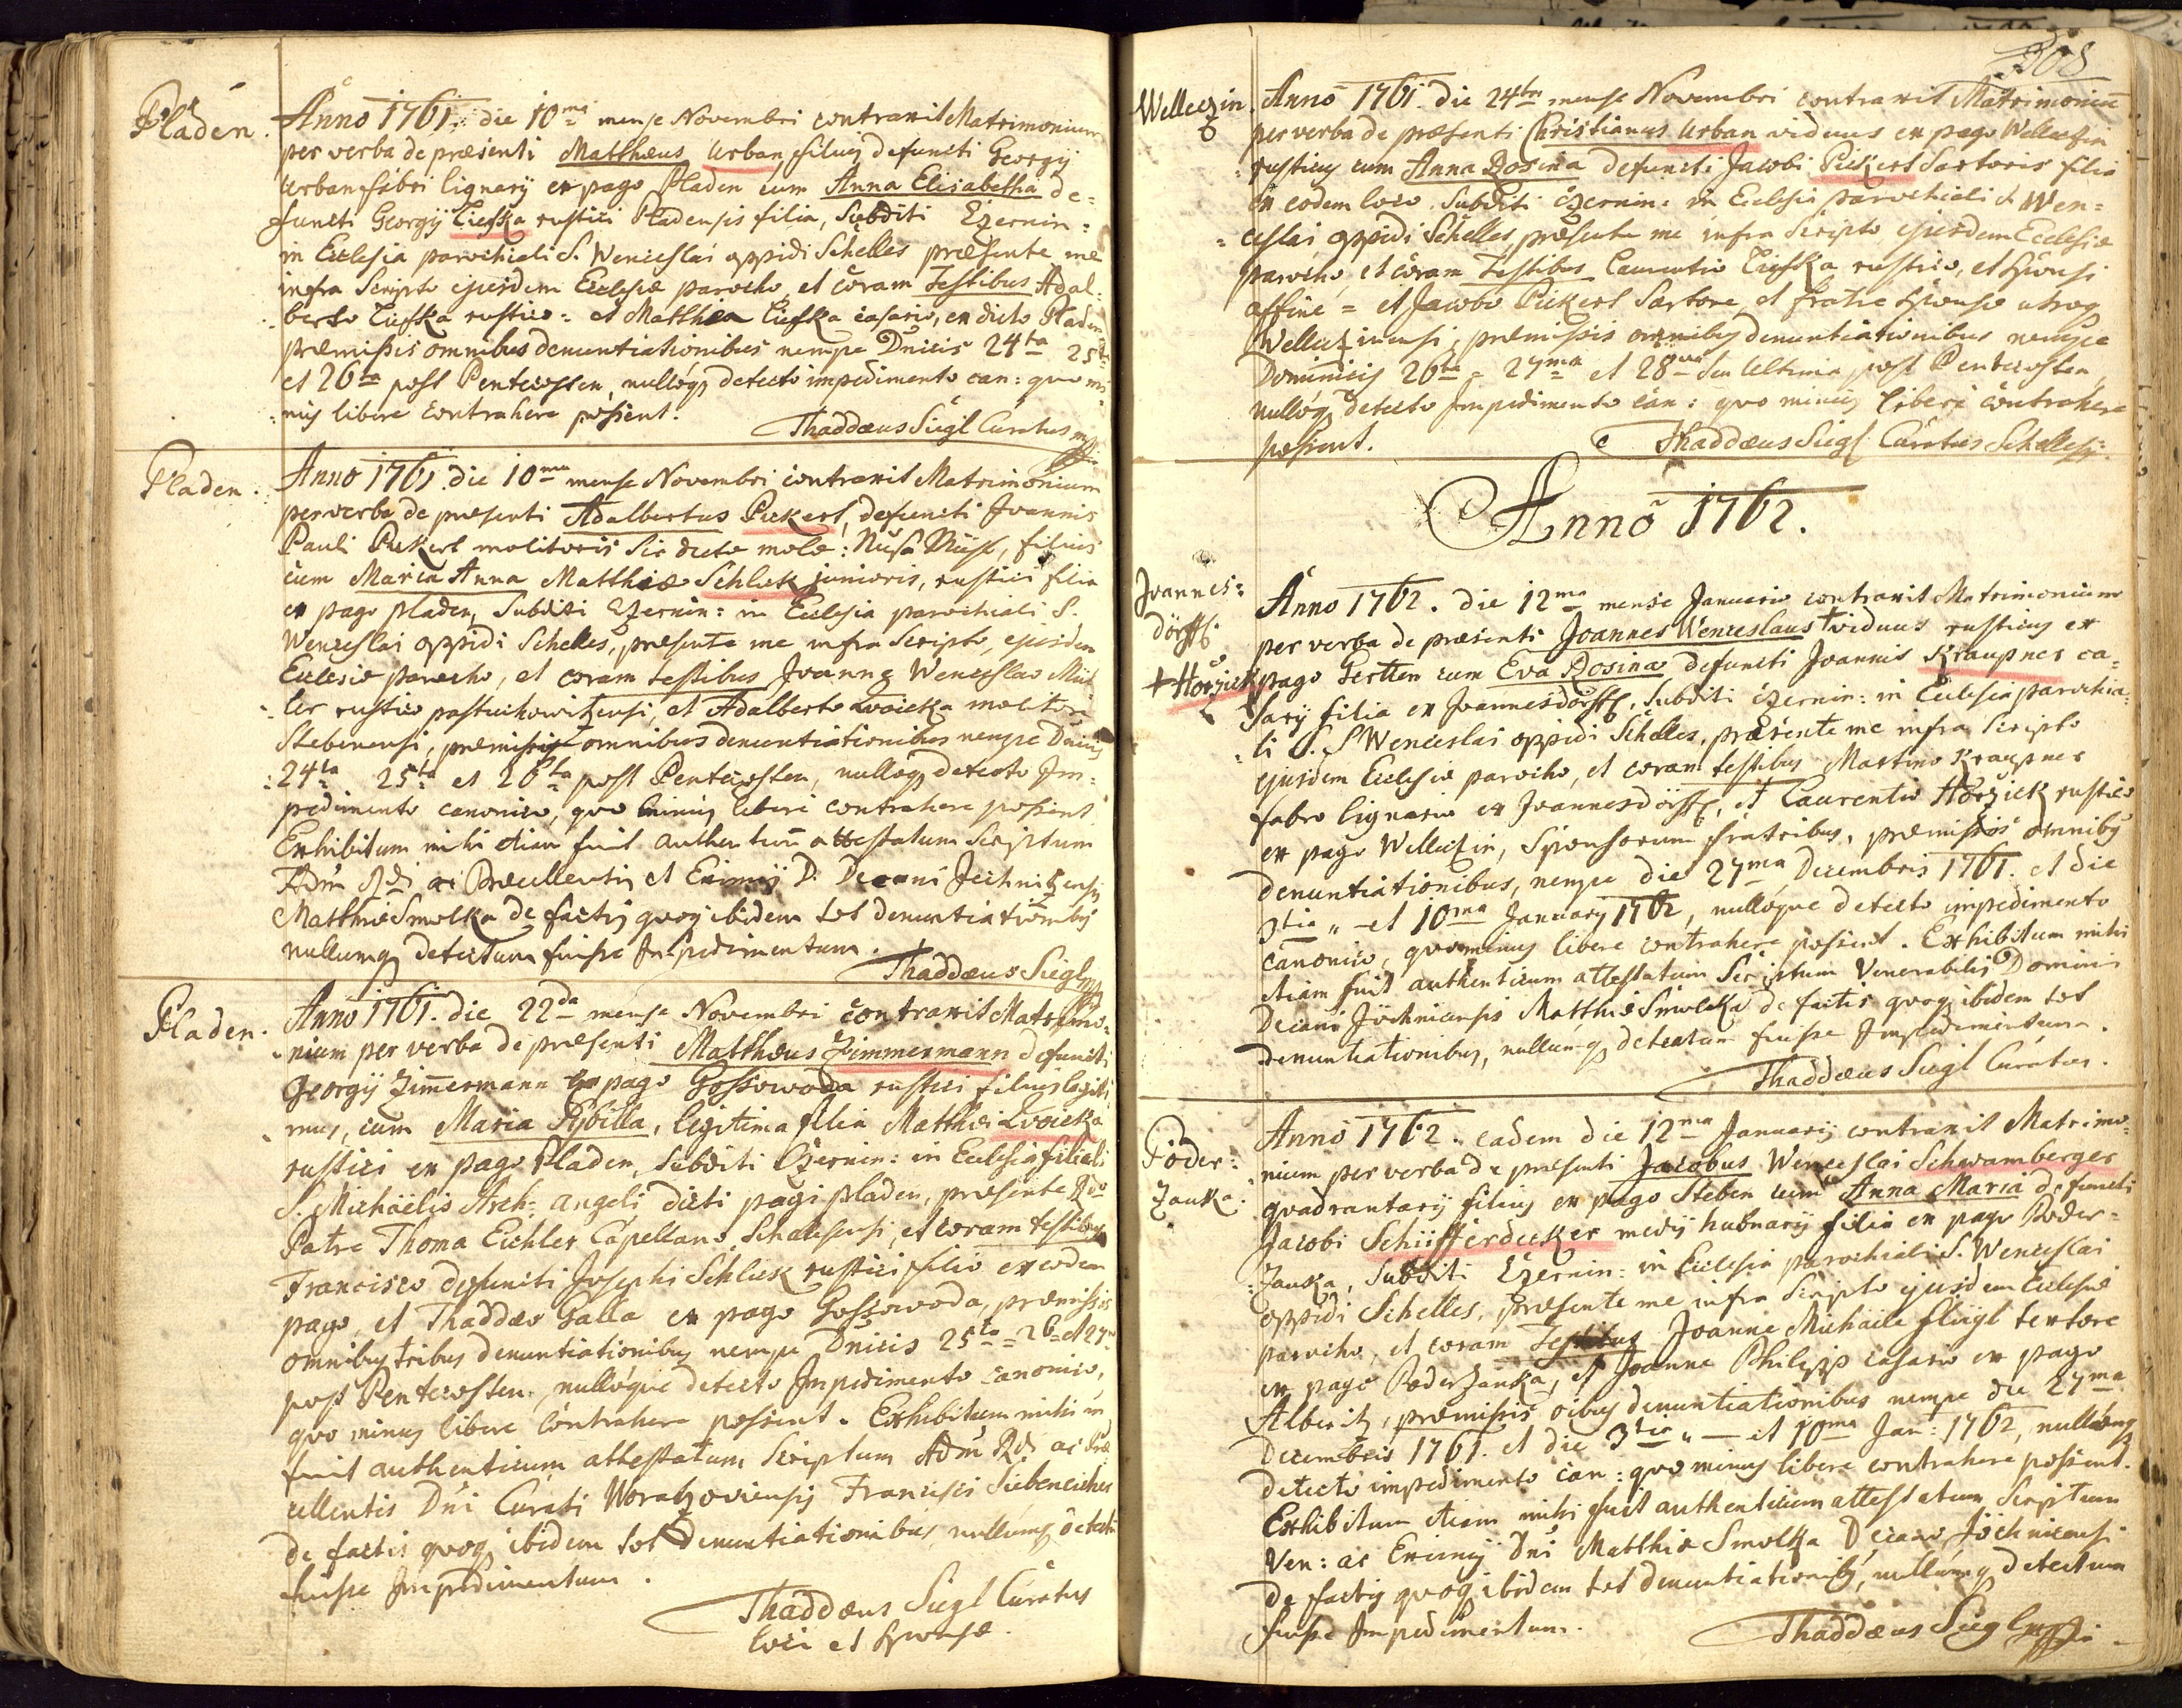 Pladen.
Anno 1761. die 10ma mense Novembri contraxit Matrimonium
per verba de præsenti Matthæus Urban, filius defuncti Georgij
Urban fabri lignarij ex pago Pladen cum Anna Elisabetha de=
functi Georgij Liefka rustici Pladensis filia, Subditi Czernin:
in Ecclesia parochiali S. Wenceslai oppidi Schelles præsente me
infra Scripto ejusdem Ecclesiæ parocho, et coram Testibus Adal=
berto Liefka rustico = et Matthia Liefka casario, ex dicto Pladen
præmissis omnibus denuntiationibus nempe Dnicis 24ta 25ta
et 26ta post Pentecosten, nulloq detecto impedimento can: quo mi=
nus libere contrahere possent.
Thaddæus Siegl Curatus mpp
Pladen.
Anno 1761. die 10ma mense Novembri contraxit Matrimonium
per verba de præsenti Adalbertus Pickert, defuncti Joannis
Pauli Pickert molitoris Sic dicto molo: filius
cum Maria Anna Matthiæ Schluk junioris, rustici filia
ex pago pladen, Subditi Czernin: in Ecclesia parochiali S.
Wenceslai oppidi Schelles, præsente me infra Scripto, ejusdem
Ecclesiæ parocho, et coram testibus Joanne Wenceslao Mül=
ler rustico pastuchowitzensi, et Adalberto Zwoicka molitore
Stebenensi, præmissis omnibus denuntiationibus nempe Dnicis
24ta 25ta et 26ta post Pentecosten, nulloq detecto Im=
pedimento canonico, quo minus libere contrahere possent
Exhibitum mihi etiam fuit authenticum attestatum Scriptum
Adm Rdi ac Præcellentis et Eximij D. Decani Jechnitzensis
Matthiæ Smolka de factis quoq ibidem tot denuntiationibus
nullumq detectum fuisse Impedimentum.
Thaddæus Siegl mpp
Pladen.
Anno 1761. die 22da mense Novembri contraxit Matrimo=
nium per verba de præsenti Matthæus Zimmermann defuncti
Georgij Zimermann ex pago Gossowoda rustici filius legiti=
mus, cum Maria Sybilla, legitima filia Matthæi Zwoicka
rustici ex pago Pladen, Subditi Czernin: in Ecclesia filiali
S. Michäelis Arch=angeli dicti pagi pladen, præsente Rdo
Patre Thoma Eichler Capellano Schelesensi, et coram testibus
Francisco defuncti Josephi Schluk rustici filio ex eodem
pago, et Thaddæo Galla ex pago Gossowoda, præmissis
omnibus tribus denuntiationibus nempe Dnicis 25ta = 26 et 27ma
post Pentecosten, nulloque detecto Impedimento canonico,
quo minus libere contrahere possent. Exhibitum mihi
fuit authenticum attestatum Scriptum Adm Rdi ac Præ
cellentis Dni Curati Woratzoviensis Francisci Siebeneicher
de factis quoq ibidem tot denuntiationibus nullumq detectum
fuisse Impedimentum.
Thaddæus Siegl Curatus
loci et Sponsæ.
308
Welleczin.
Anno 1761. die 24ta mense Novembri contraxit Matrimonium
per verba de præsenti Christianus Urban viduus ex pago Welletzin
rusticus cum Anna Rosina defuncti Jacobi Pickert Sartoris filia
ex eodem loco Subditi Czernin: in Ecclesia parochiali S. Wen=
ceslai oppidi Schelles, præsente me infra Scripto ejusdem Ecclesiæ
parocho, et coram Testibus Laurentio Liefka rustico, et Sponsi
affine = et Jacobo Pickert Sartore, et fratre Sponsæ utroq
Welletzinensi, præmissis omnibus denuntiationibus nempe
Dominicis 26ta = 27ma et 28va Seu Ultima post Pentecosten,
nulloq detecto Impedimento can: quo minus libere contrahere
possent.
Thaddæus Siegl Curatus Schelles:
Anno 1762.
Joannes=
dörff.
+ Horžiek
Anno 1762. die 12ma mense Januario contraxit Matrimonium
per verba de præsenti Joannes Wenceslaus + viduus rusticus ex
pago Gertten cum Eva Rosina defuncti Joannis Kraupner ca=
sarij filia ex Joannesdörff, Subditi Czernin: in Ecclesia parochia=
li S. S Wenceslai oppidi Schelles, præsente me infra Scripto
ejusdem Ecclesiæ parocho, et coram testibus Martino Kraupner
fabro lignario ex Joannesdörff, et Laurentio Horžiek rustico
ex pago Welletzin, Sponsorum fratribus, præmissis omnibus
denuntiationibus, nempe die 27ma Decembris 1761. et die
3tia " - et 10ma January 1762, nulloque detecto impedimento
canonico, quo minus libere contrahere possent. Exhibitum mihi
etiam fuit authenticum attestatum Scriptum Venerabilis Domini
Decani Jöchnicensis Matthiæ Smolka de factis quoq ibidem tot
denuntiationibus, nullumq detectum fuisse Impedimentum.
Thaddæus Siegl Curatus.
Poder=
Zanka.
Anno 1762. eadem die 12ma Januarij contraxit Matrimo=
nium per verba de præsenti Jacobus Wenceslai Schwamberger
quadrantarij filius ex pago Steben cum Anna Maria defuncti
Jacobi Schüfferdecker medij hubnarij filia ex pago Poder=
Zanka, Subditi Czernin: in Ecclesia parochiali S. Wenceslai
oppidi Schelles, præsente me infra Scripto ejusdem Ecclesiæ
parocho, et coram Testibus Joanne Michaele fliegl textore
ex pago Poderzanka, et Joanne Philipp casario ex pago
Alberitz, præmissis oibus denuntiationibus nempe die 27ma
Decembris 1761. et die 3tia " — et 10ma Jan: 1762, nulloq
detecto impedimento can: quo minus libere contrahere possent.
Exhibitum etiam mihi fuit authenticum attestatum Scriptum
Ven: ac Eximij Dni Matthiæ Smolka Decano Jöchnicensi
de factis quoq ibidem tot denuntiationibus, nullumq detectum
fuisse Impedimentum.
Thaddæus Siegl mpp